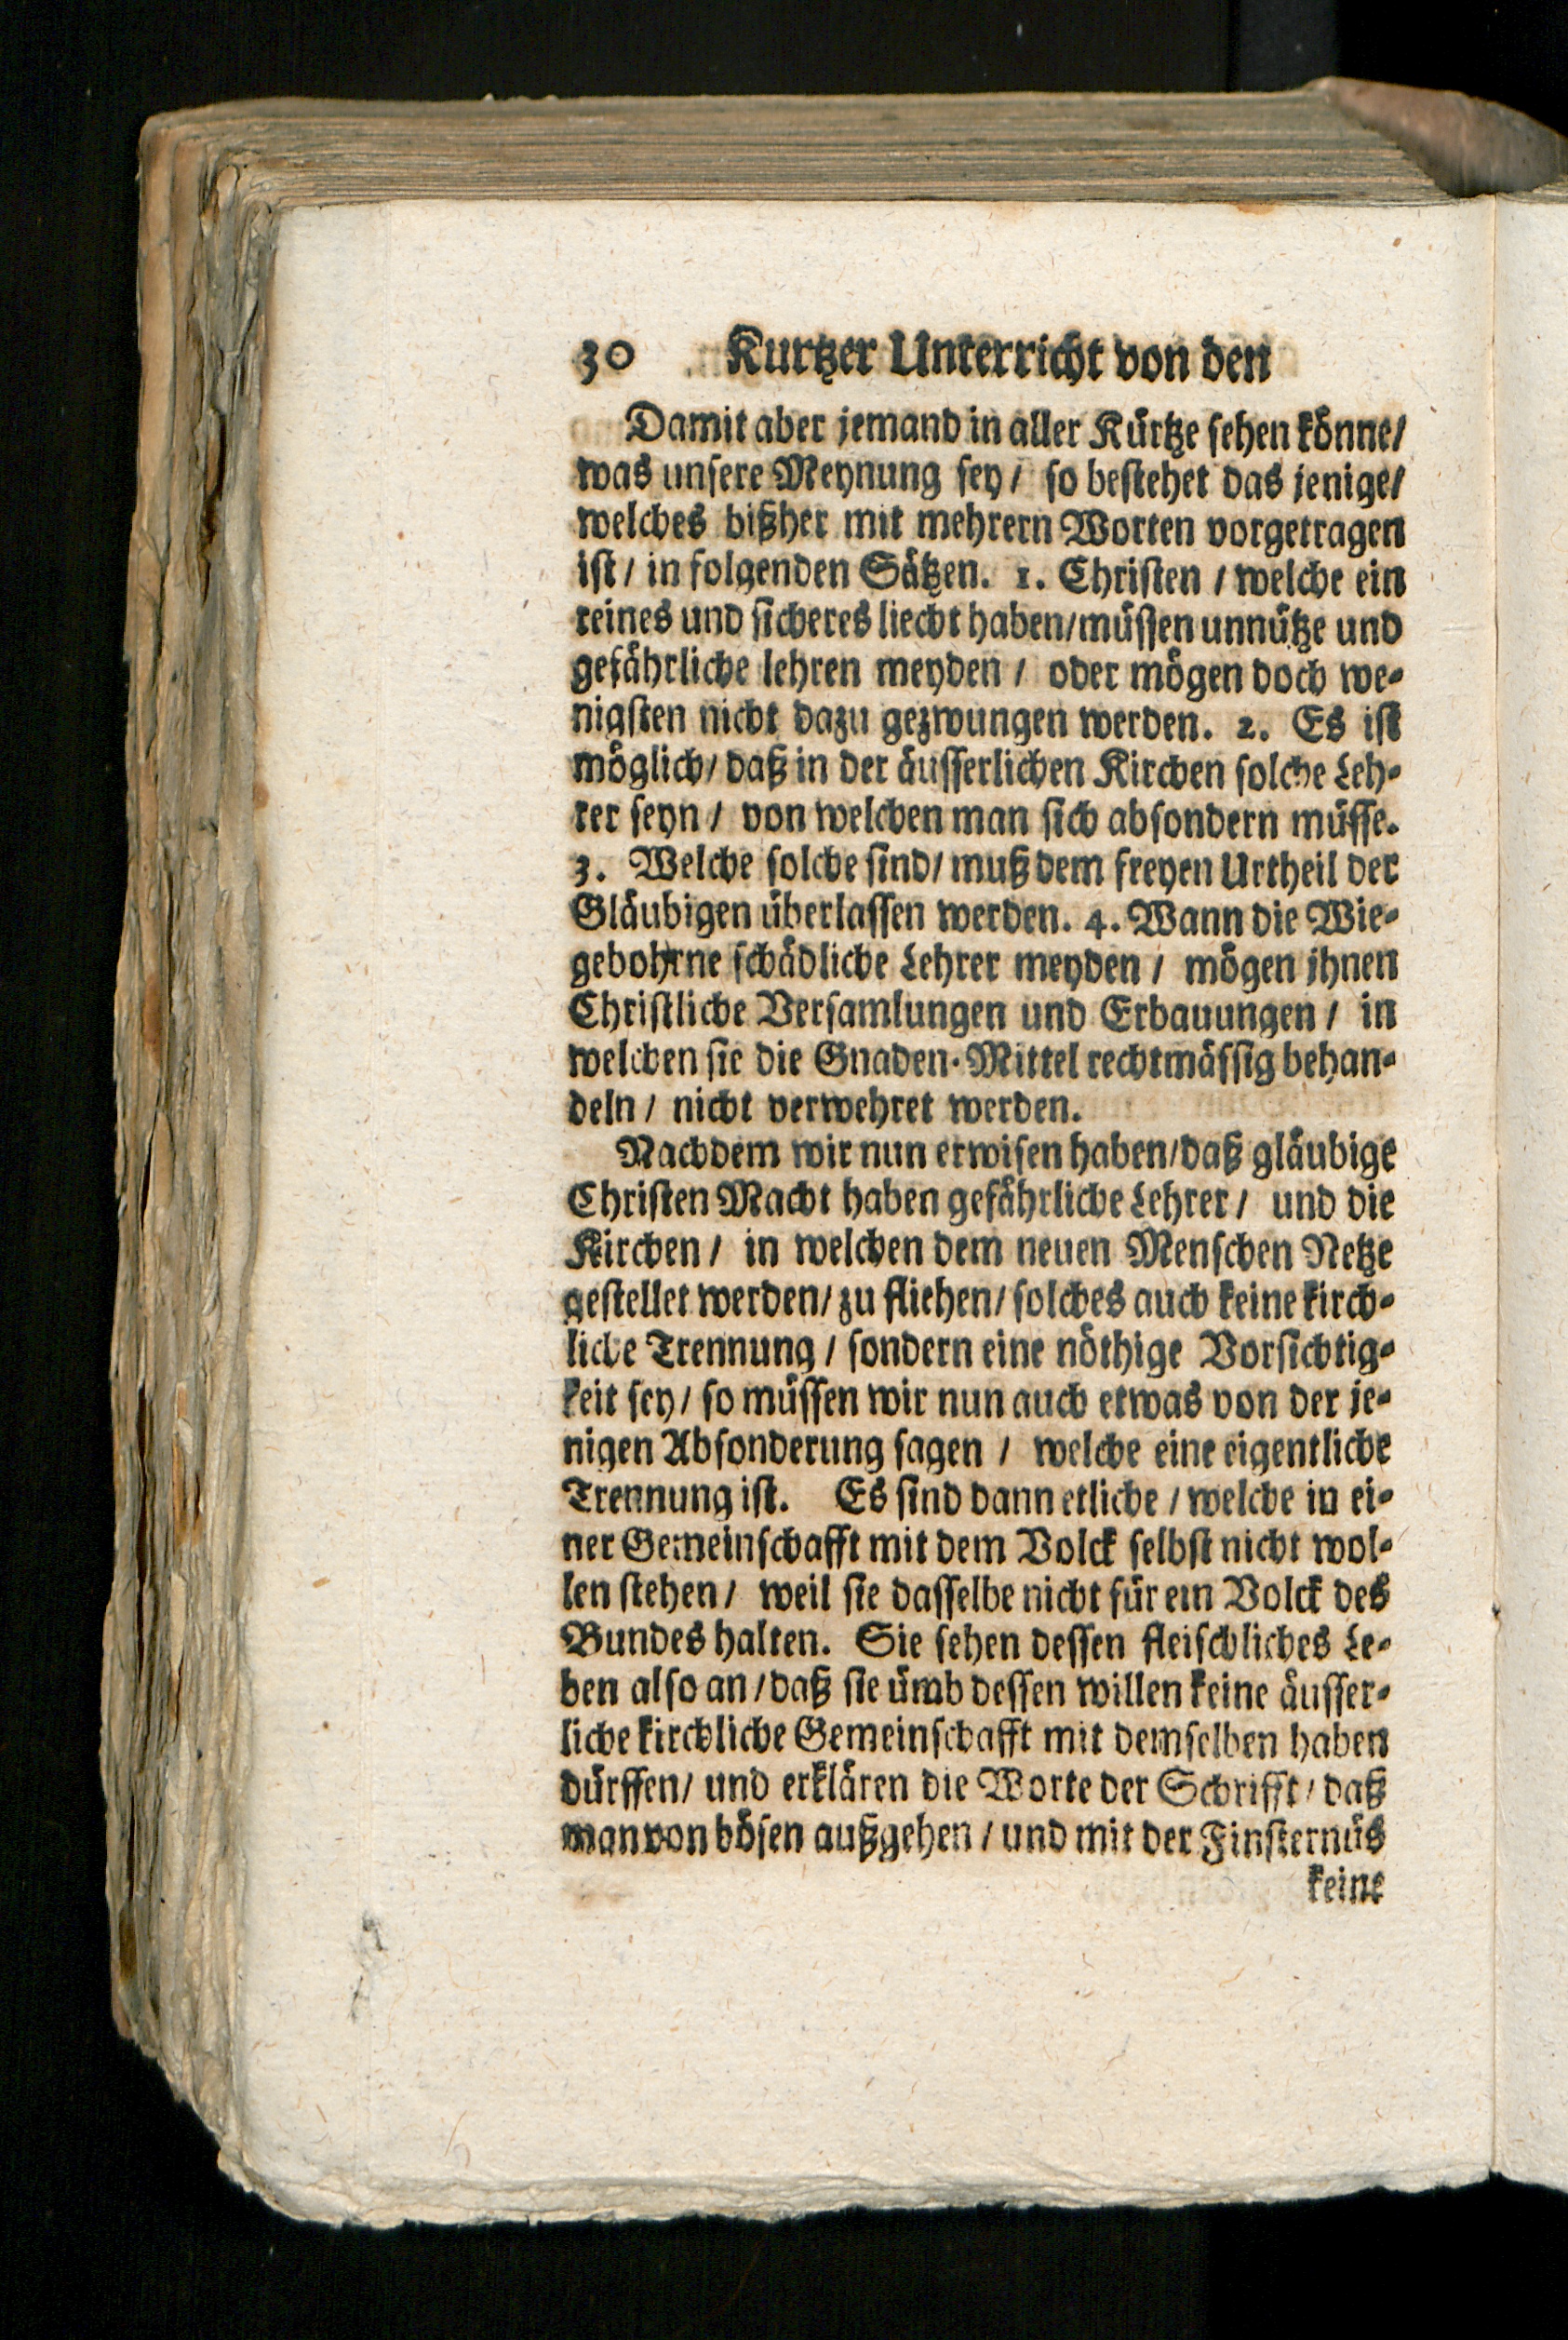 30 Kurtzer Unterricht von den
Damit aber jemand in aller Kürtze sehen könne/
was unsere Meynung sey/ so bestehet das jenige/
welches bißher mit mehrern Worten vorgetragen
ist/ in folgenden Sätzen. 1. Christen / welche ein
reines und sicheres liecht haben/müssen unnütze und
gefährliche lehren meyden / oder mögen doch we-
nigsten nicht dazu gezwungen werden. 2. Es ist
möglich/ daß in der äusserlichen Kirchen solche Leh-
rer seyn / von welchen man sich absondern müsse.
3. Welche solche sind/ muß dem freyen Urtheil der
Gläubigen überlassen werden. 4. Wann die Wie-
gebohrne schädliche Lehrer meyden / mögen ihnen
Christliche Versamlungen und Erbauungen / in
welchen sie die Gnaden-Mittel rechtmässig behan-
deln / nicht verwehret werden.
Nachdem wir nun erwisen haben/daß gläubige
Christen Macht haben gefährliche Lehrer / und die
Kirchen / in welchen dem neuen Menschen Netze
gestellet werden/ zu fliehen/ solches auch keine kirch-
liche Trennung / sondern eine nöthige Vorsichtig-
keit sey/ so müssen wir nun auch etwas von der je-
nigen Absonderung sagen / welche eine eigentliche
Trennung ist. Es sind dann etliche / welche in ei-
ner Gemeinschafft mit dem Volck selbst nicht wol-
len stehen / weil sie dasselbe nicht für ein Volck des
Bundes halten. Sie sehen dessen fleischliches Le-
ben also an / daß sie ümb dessen willen keine äusser-
liche kirchliche Gemeinschafft mit demselben haben
dürffen/ und erklären die Worte der Schrifft / daß
man von bösen außgehen / und mit der Finsternüs
keine